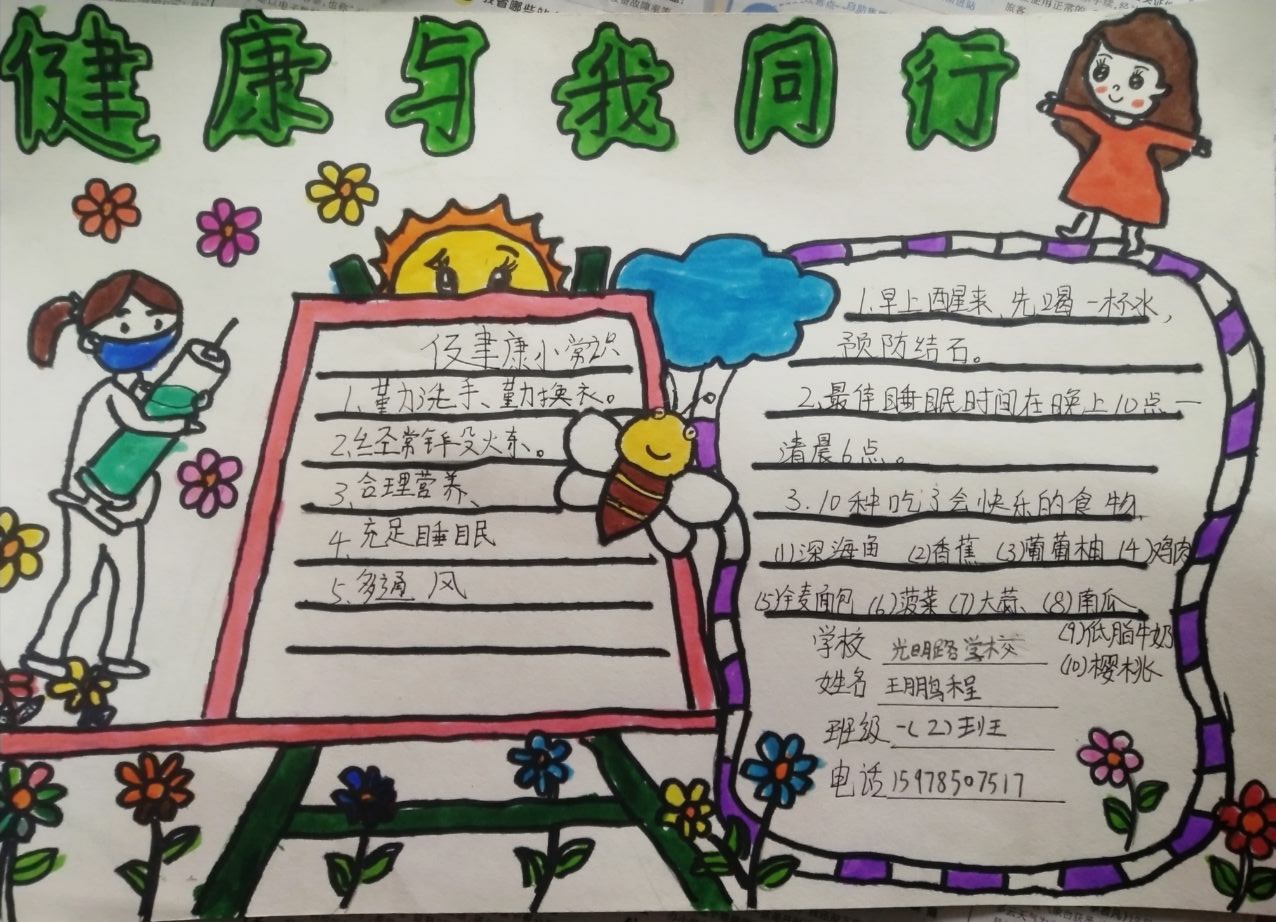 健康与我同行
健康小常识
1.勤洗手、勤换衣。
2.经常锻炼。
3.合理营养、
4.充足睡眠
5.多通风
1.早上醒来,先喝一杯水,
预防结石。
2.最佳睡眠时间在晚上10点一
清晨6点。
3.10种吃了会快乐的食物
(1)深海鱼 (2)香蕉 (3)葡萄柚 (4)鸡肉
(5)全麦面包 (6)菠菜 (7)大蒜、(8)南瓜、
(9)低脂牛奶
(10)樱桃
学校 光明路学校
姓名 王鹏程
班级 一(2)班
电话 15978507517